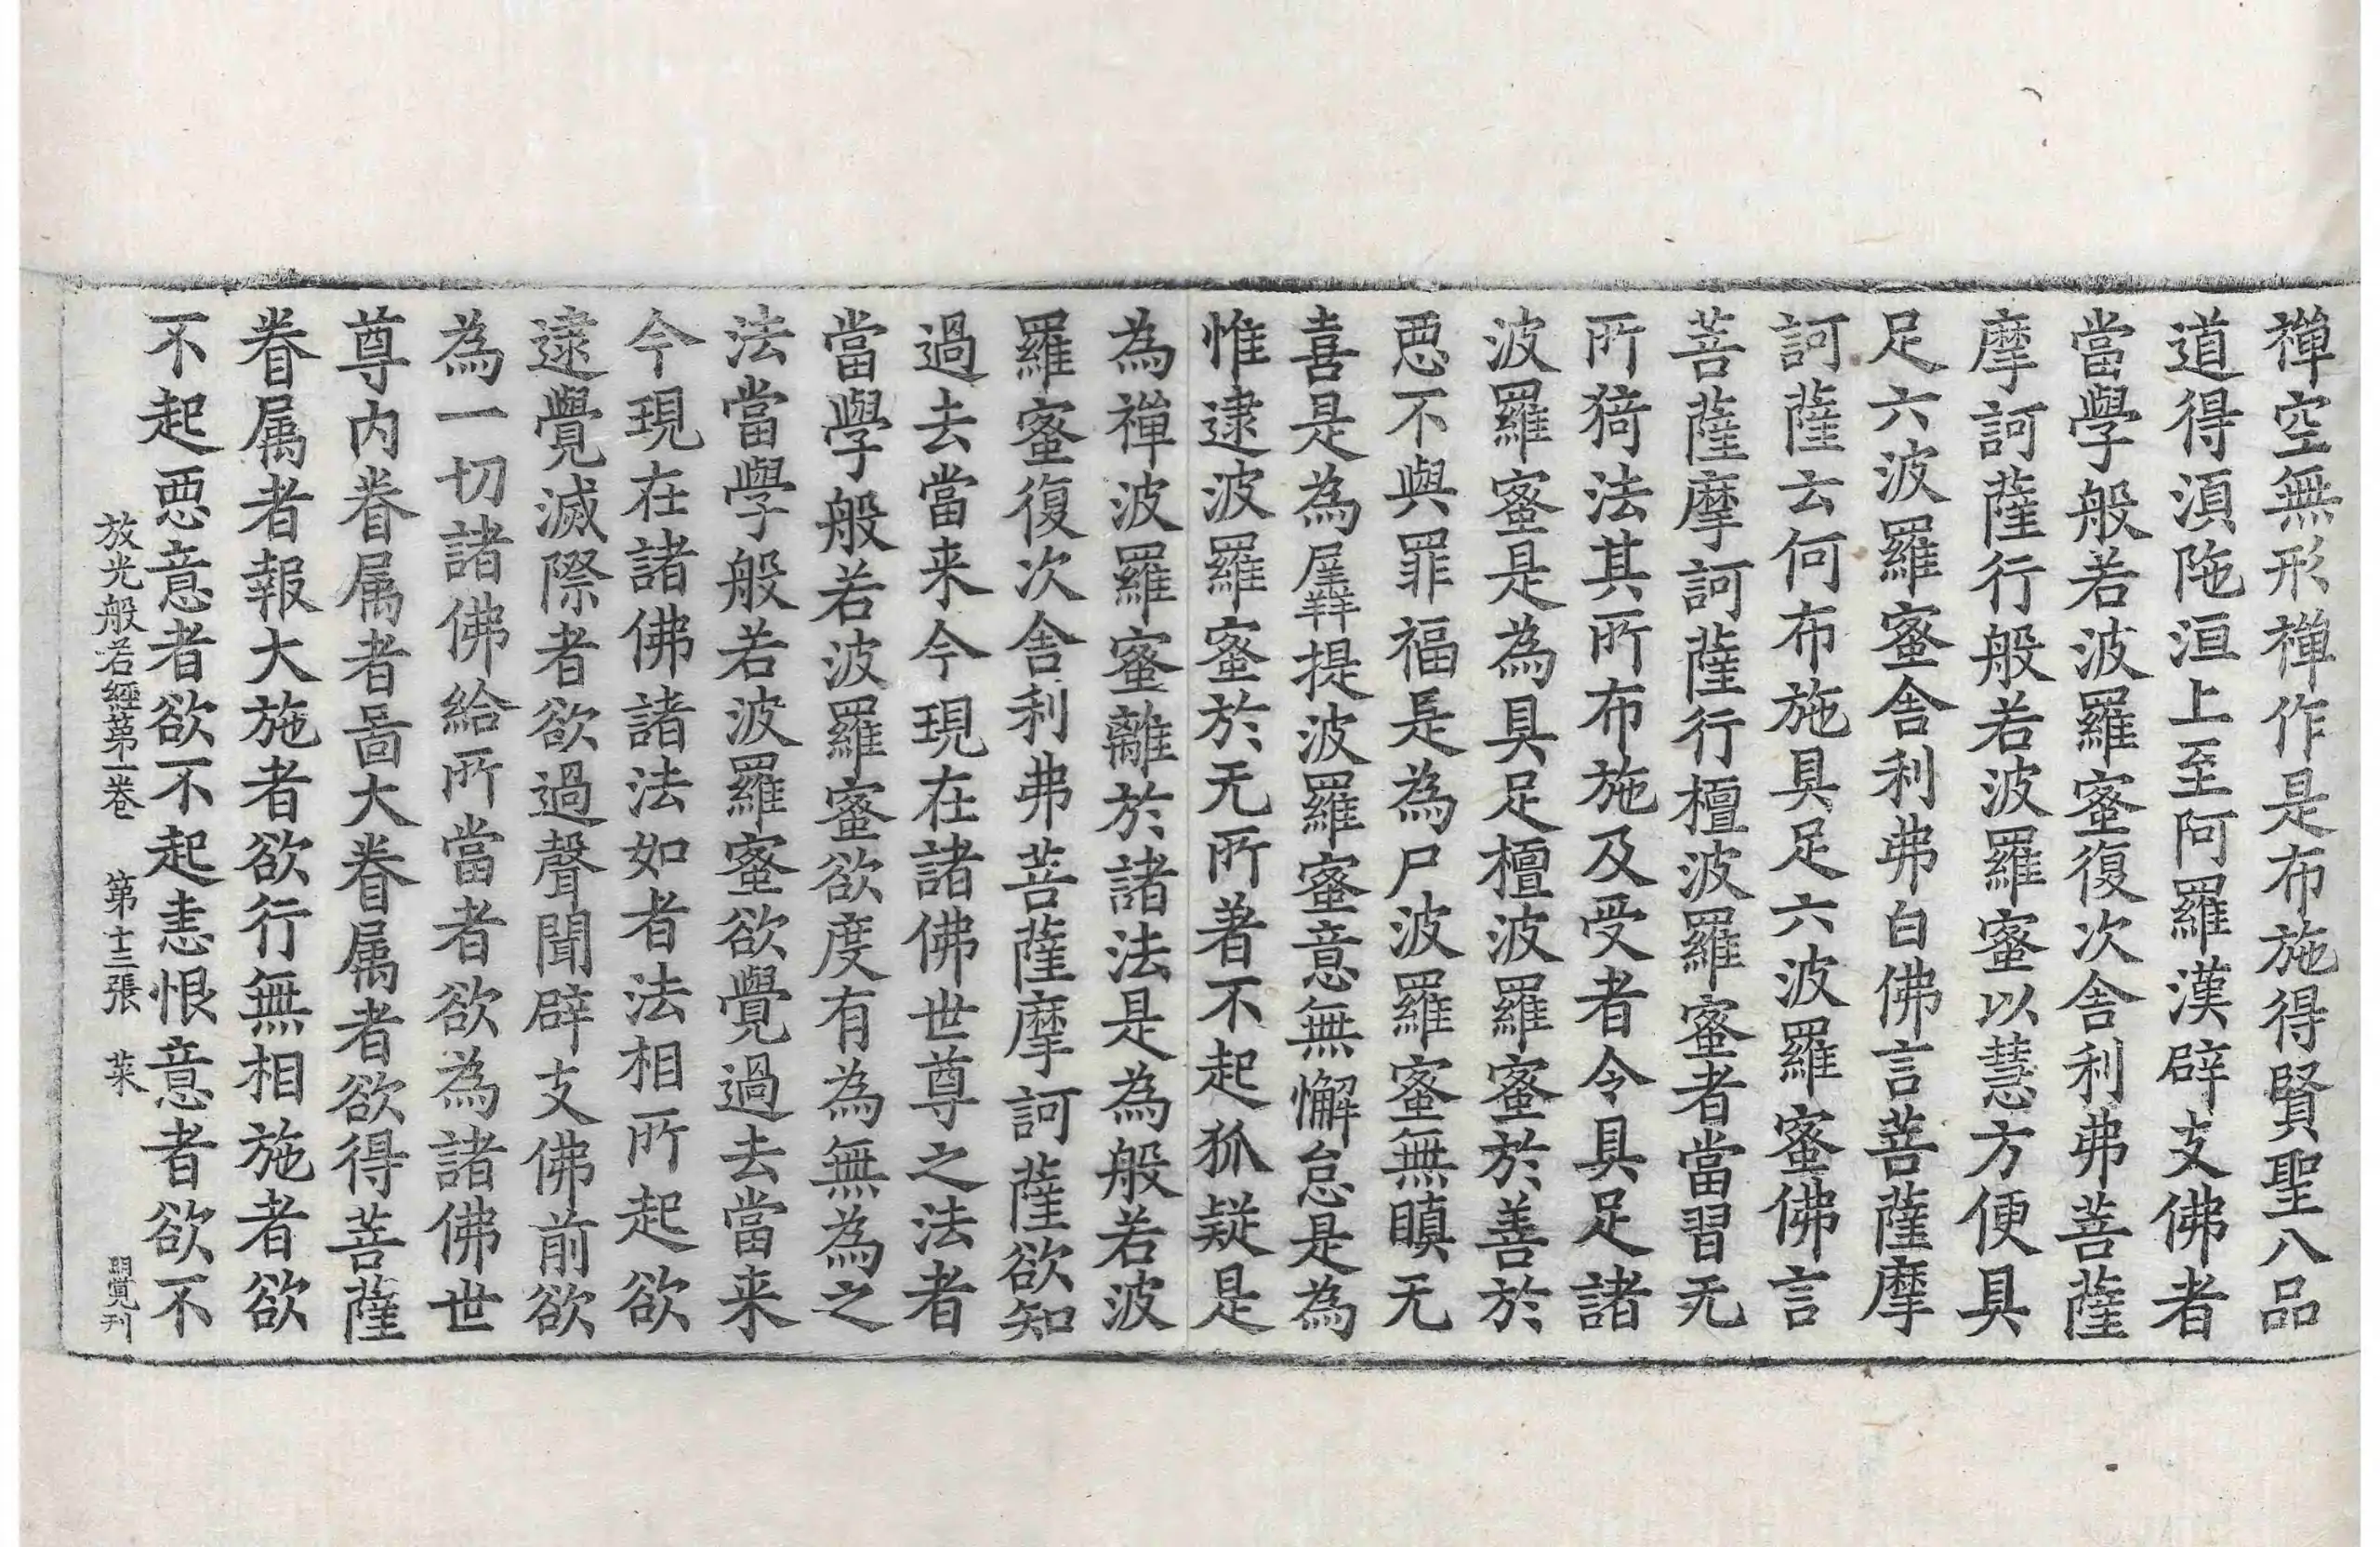 禪空無形禪作是布施得賢聖八品
道得湏陁洹上至阿羅漢辟支佛者
當學般若波羅蜜復次舍利弗菩薩
摩訶薩行般若波羅蜜以慧方便具
足六波羅蜜舍利弗白佛言菩薩摩
訶薩云何布施具足六波羅蜜佛言
菩薩摩訶薩行檀波羅蜜者當習无
所猗法其所布施及受者令具足諸
波羅蜜是為具足檀波羅蜜於善於
惡不與罪福是為尸波羅蜜無瞋无
喜是為羼提波羅蜜意無懈怠是為
惟逮波羅蜜於无所著不起狐疑是
為禪波羅蜜離於諸法是為般若波
羅蜜復次舍利弗菩薩摩訶薩欲知
過去當来今現在諸佛世尊之法者
當學般若波羅蜜欲度有為無為之
法當學般若波羅蜜欲覺過去當来
今現在諸佛諸法如者法相所起欲
逮覺滅際者欲過聲聞辟支佛前欲
為一切諸佛給所當者欲為諸佛世
尊内眷属者啚大眷属者欲得菩薩
眷属者報大施者欲行無相施者欲
不起惡意者欲不起恚恨意者欲不
放光般若經第一卷 第十三張 菜 明覺刊